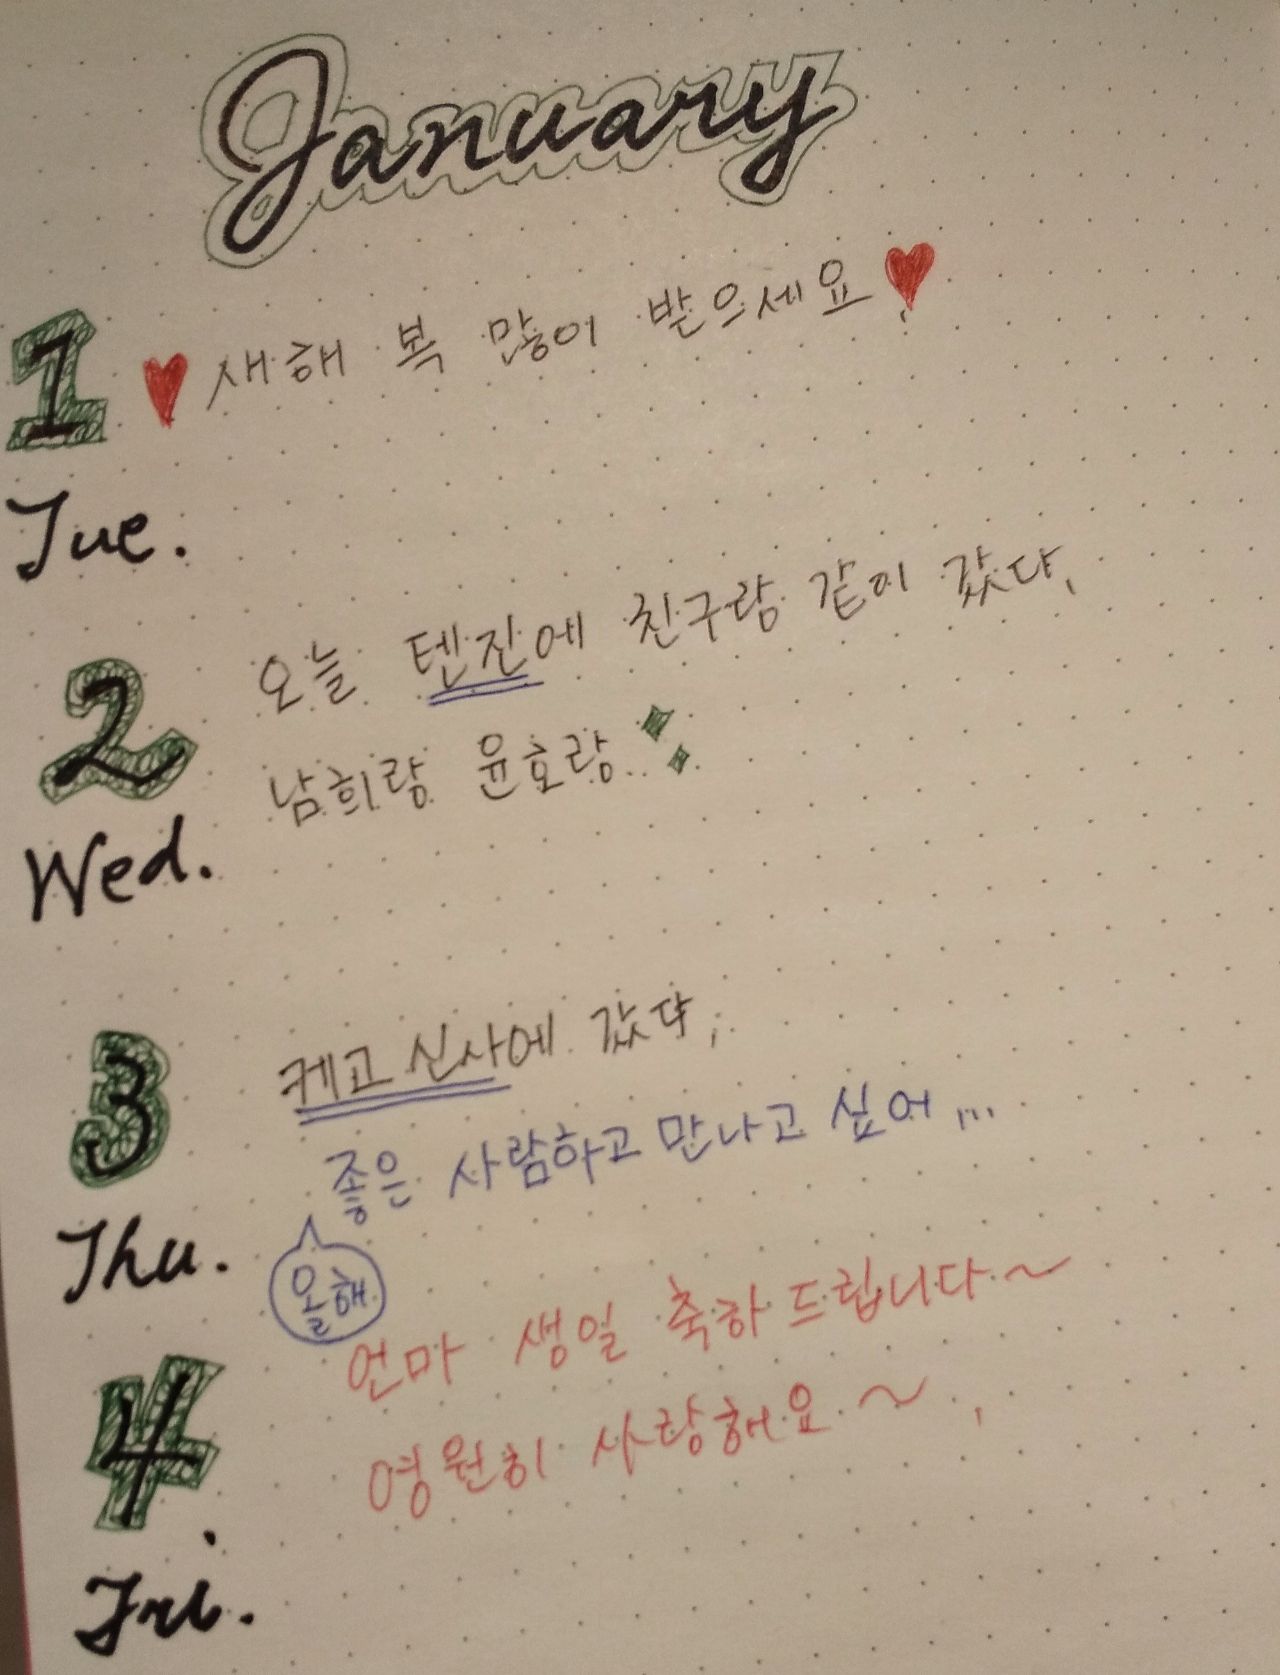 January
1 ♥ 새해 복 많이 받으세요 ♥
Tue.
2 오늘 텐진에 친구랑 같이 갔다.
남희랑 윤호랑
Wed.
3 케고 신사에 갔다.
좋은 사람하고 만나고 싶어...
올해
Thu.
4 언마 생일 축하드립니다~
영원히 사랑해요~
Fri.